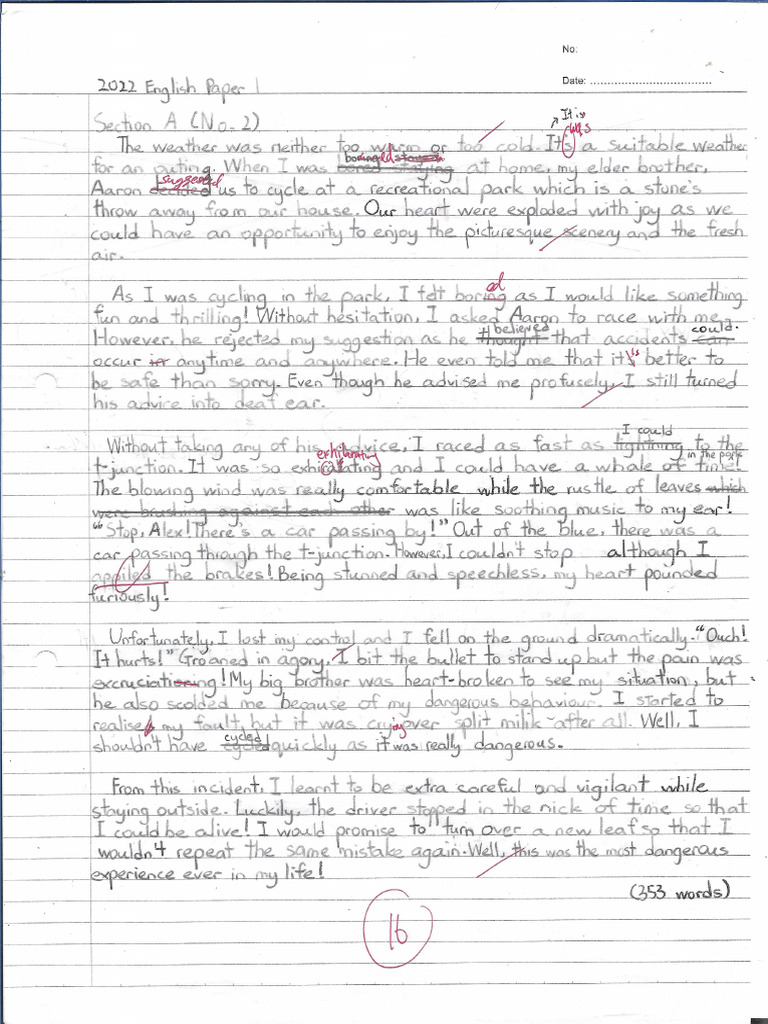 No:
Date: ....................................
2022 English Paper 1
Section A (No. 2)
It is
The weather was neither too warm or too cold. It is was a suitable weather
boringed
for an outing. When I was bored staying at home, my elder brother,
suggested
Aaron decided us to cycle at a recreational park which is a stone's
throw away from our house. Our heart were exploded with joy as we
could have an opportunity to enjoy the picturesque scenery and the fresh
air.
ed
As I was cycling in the park, I felt boring as I would like something
fun and thrilling! Without hesitation, I asked Aaron to race with me.
believed could
However, he rejected my suggestion as he thought that accidents can
occur in anytime and anywhere. He even told me that it's better to
be safe than sorry. Even though he advised me profusely, I still turned
his advice into deaf ear.
I could
Without taking any of his advice, I raced as fast as lightning to the
exhilarating in the park
t-junction. It was so exhiralating and I could have a whale of time!
The blowing wind was really comfortable while the rustle of leaves which
were brushing against each other was like soothing music to my ear!
"Stop, Alex! There's a car passing by!" Out of the blue, there was a
car passing through the t-junction. However, I couldn't stop although I
appiled the brakes! Being stunned and speechless, my heart pounded
furiously!
Unfortunately, I lost my control and I fell on the ground dramatically. "Ouch!
It hurts!" Groaned in agony, I bit the bullet to stand up but the pain was
excruciating! My big brother was heart-broken to see my situation, but
he also scolded me because of my dangerous behaviour. I started to
realise my fault, but it was crying over split milik after all. Well, I
cycled
shouldn't have cycled quickly as it was really dangerous.
From this incident, I learnt to be extra careful and vigilant while
staying outside. Luckily, the driver stopped in the nick of time so that
I could be alive! I would promise to turn over a new leaf so that I
wouldn't repeat the same mistake again. Well, this was the most dangerous
experience ever in my life!
(353 words)
16